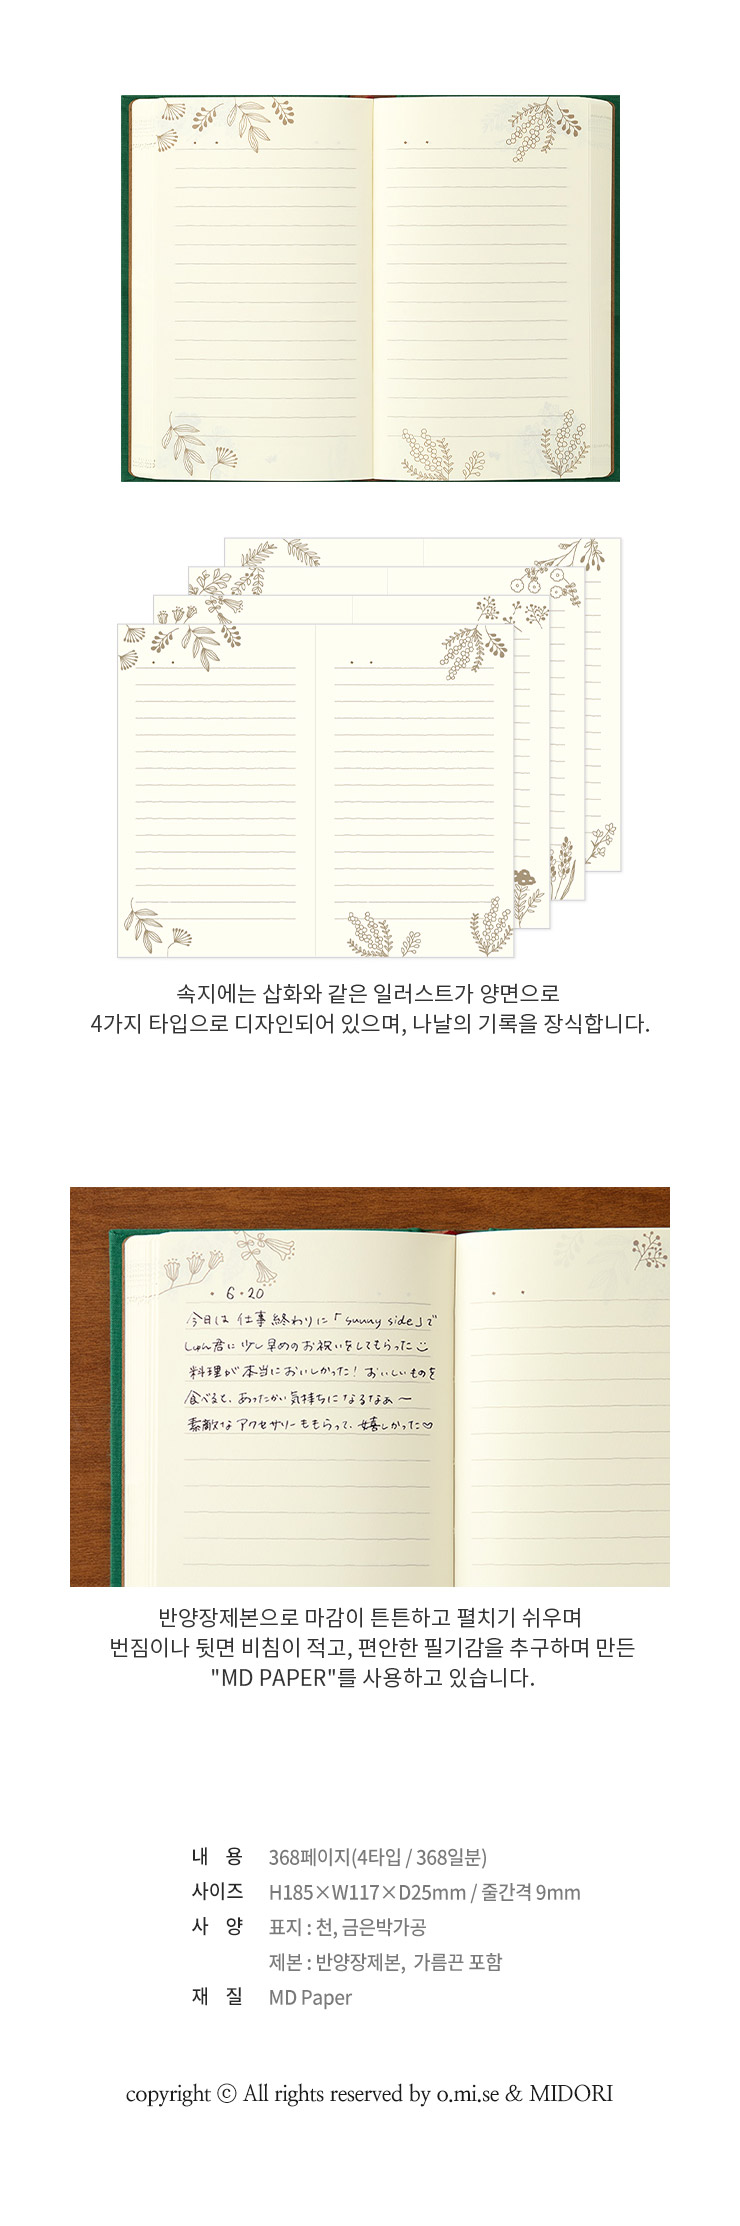 속지에는 삽화와 같은 일러스트가 양면으로
4가지 타입으로 디자인되어 있으며, 나날의 기록을 장식합니다.
6・20
今日は 仕事 終わりに「sunny side」で
しゅん君に 少し早めの お祝いをしてもらった
料理が 本当に おいしかった! おいしいものを
食べると、あったかい 気持ちに なるなぁ〜
素敵な アクセサリーももらって、嬉しかった♡
반양장제본으로 마감이 튼튼하고 펼치기 쉬우며
번짐이나 뒷면 비침이 적고, 편안한 필기감을 추구하며 만든
"MD PAPER"를 사용하고 있습니다.
내 용 368페이지(4타입 / 368일분)
사이즈 H185×W117×D25mm / 줄간격 9mm
사 양 표지 : 천, 금은박가공
제본 : 반양장제본, 가름끈 포함
재 질 MD Paper
copyright ⓒ All rights reserved by o.mi.se & MIDORI